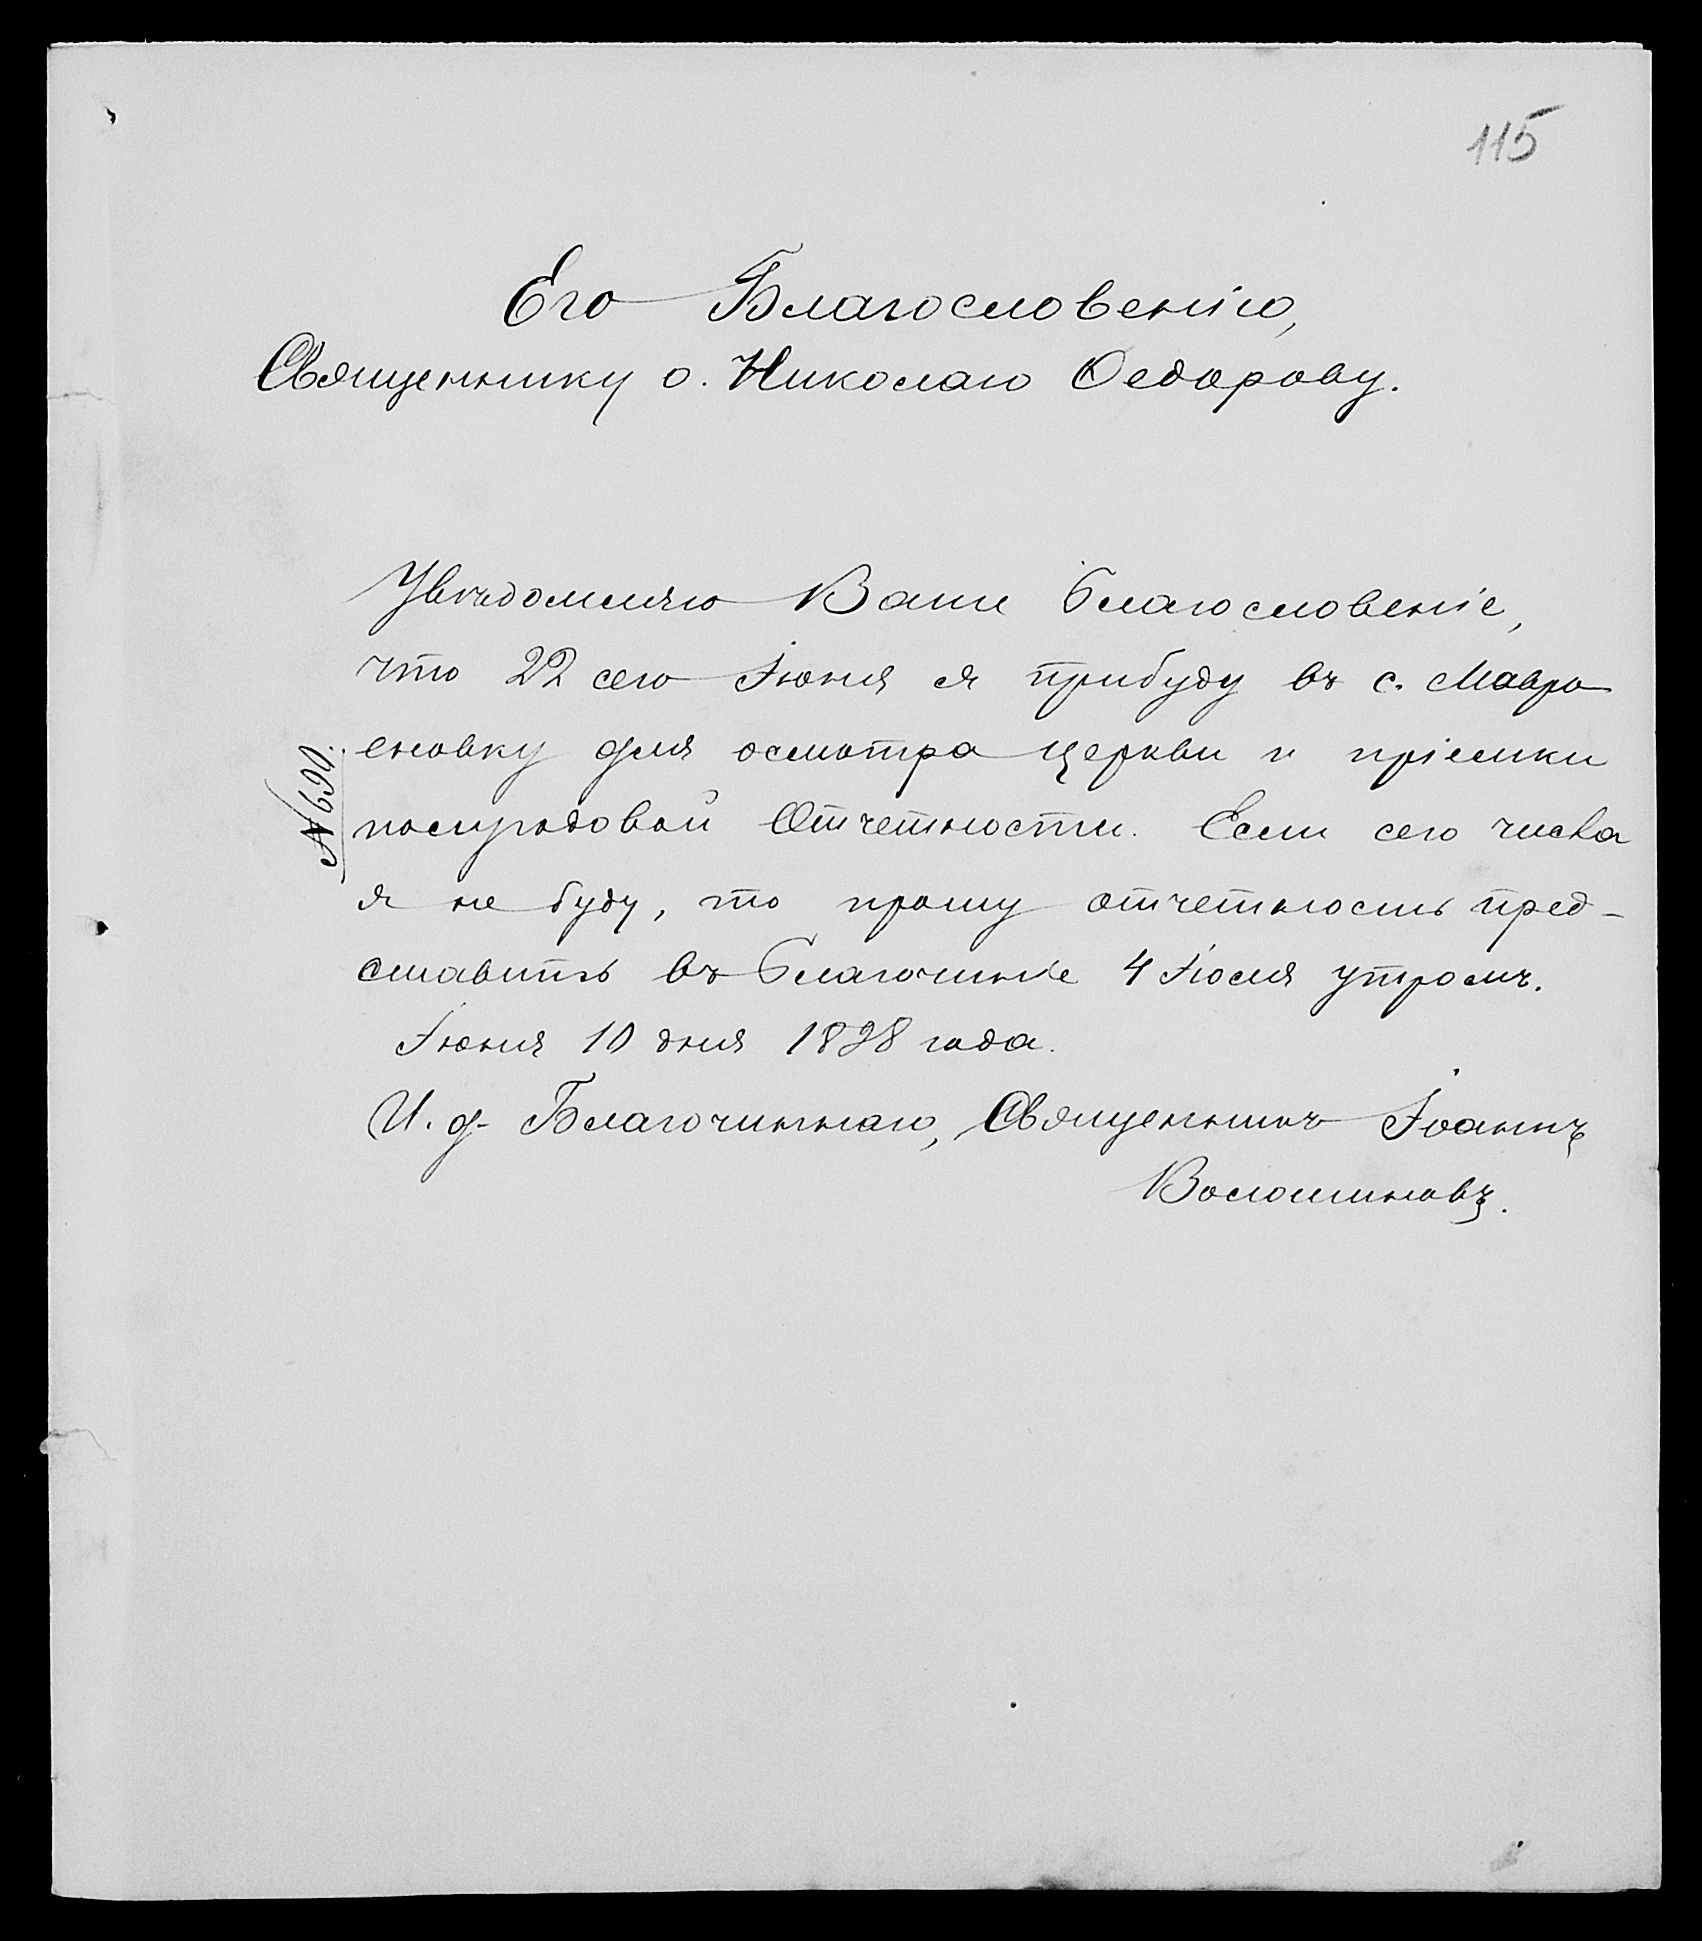 115
Его Благословенію,
Священнику о. Николаю Ѳедорову.
Увѣдомляю Ваше благословеніе,
что 22 сего Іюня я прибуду въ с. Мавро
еновку для осмотра церкви и пріемки
№ 690.
полугодовой Отчетности. Если сего числа
я не буду, то прошу отчетность пред-
ставить въ благочиніе 4 Іюля утромъ.
Іюня 10 дня 1898 года.
И. д. Благочиннаго, Священникъ Іоаннъ
Волошиновъ.